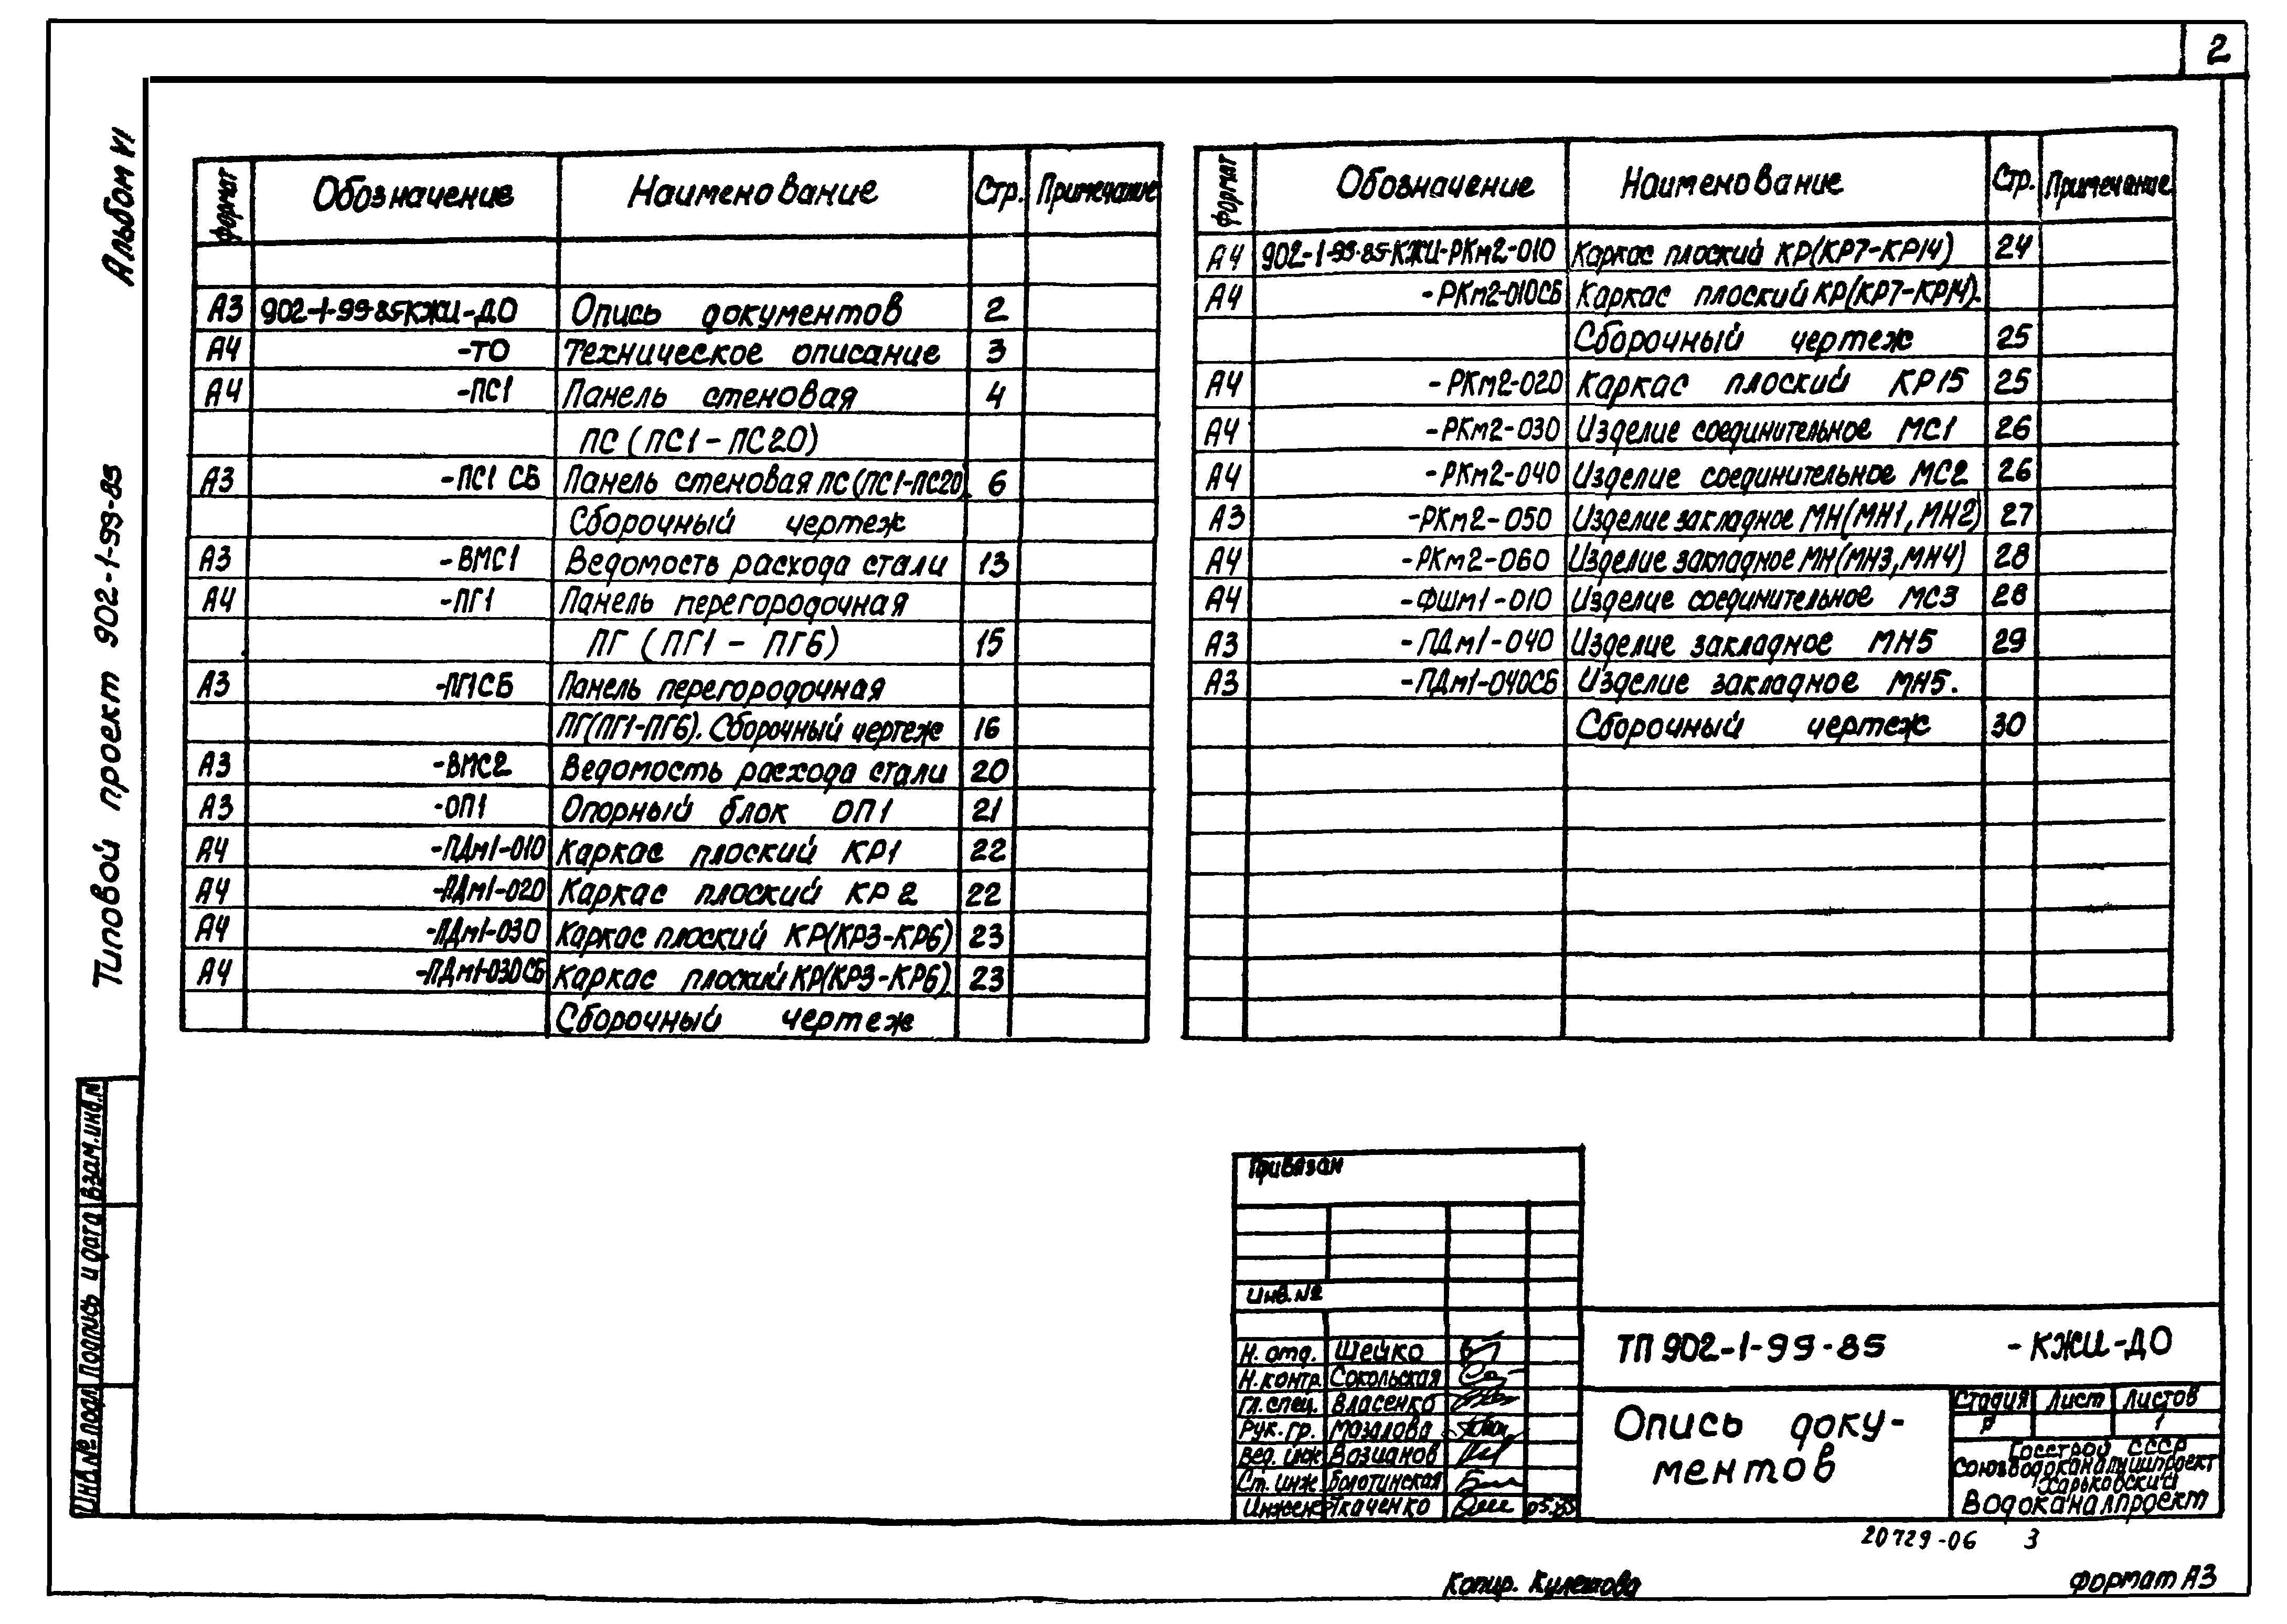 2
Альбом VI
Типовой проект 902-1-99-85
Формат Обозначение Наименование Стр. Примечание
А3 902-1-99-85КЖИ-ДО Опись документов 2
А4 -ТО Техническое описание 3
А4 -ПС1 Панель стеновая 4
ПС (ПС1-ПС20)
А3 -ПС1 СБ Панель стеновая ПС (ПС1-ПС20). 6
Сборочный чертеж
А3 -ВМС1 Ведомость расхода стали 13
А4 -ПГ1 Панель перегородочная
ПГ (ПГ1 - ПГ6) 15
А3 -ПГ1СБ Панель перегородочная
ПГ(ПГ1-ПГ6). Сборочный чертеж 16
А3 -ВМС2 Ведомость расхода стали 20
А3 -ОП1 Опорный блок ОП1 21
А4 -ПДм1-010 Каркас плоский КР1 22
А4 -ПДм1-020 Каркас плоский КР2 22
А4 -ПДм1-030 Каркас плоский КР(КР3-КР6) 23
А4 -ПДм1-030СБ Каркас плоский КР(КР3-КР6). 23
Сборочный чертеж
Формат Обозначение Наименование Стр. Примечание
А4 902-1-99-85-КЖИ-РКм2-010 Каркас плоский КР(КР7-КР14) 24
А4 -РКм2-010СБ Каркас плоский КР(КР7-КР14).
Сборочный чертеж 25
А4 -РКм2-020 Каркас плоский КР15 25
А4 -РКм2-030 Изделие соединительное МС1 26
А4 -РКм2-040 Изделие соединительное МС2 26
А3 -РКм2-050 Изделие закладное МН(МН1, МН2) 27
А4 -РКм2-060 Изделие закладное МН(МН3, МН4) 28
А4 -ФШм1-010 Изделие соединительное МС3 28
А3 -ПДм1-040 Изделие закладное МН5 29
А3 -ПДм1-040СБ Изделие закладное МН5.
Сборочный чертеж 30
Инв.№ подл. Подпись и дата Взам.инв.№
Привязан
Инв.№
Н. отд. Шейко
Н.контр. Сокольская
Гл.спец. Власенко
Рук.гр. Мазалова
Вед. инж Возианов
Ст. инж. Болотинская
Инжен Ткаченко 05.85
ТП 902-1-99-85 -КЖИ-ДО
Опись доку-
ментов
Стадия Лист Листов
Р 1
Госстрой СССР
Союзводоканалниипроект
Харьковский
Водоканалпроект
20729-06 3
Копир. Кулешова
Формат А3